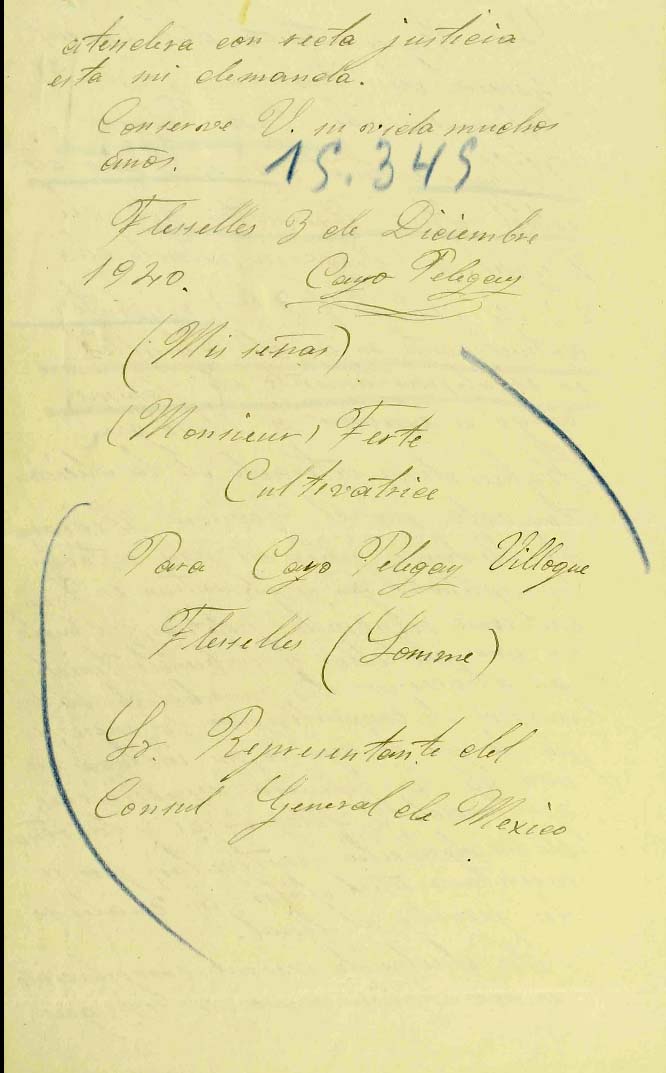 atendera con recta justicia
esta mi demanda.
Conserve V. su vida muchos
años.
15.345
Flesselles 3 de Diciembre
1940. Cayo Pelegay
(Mis señas)
(Monsieur) Ferte
Cultivatrice
Para Cayo Pelegay Villogue
Flesselles (Somme)
Sr. Representante del
Consul General de Mexico